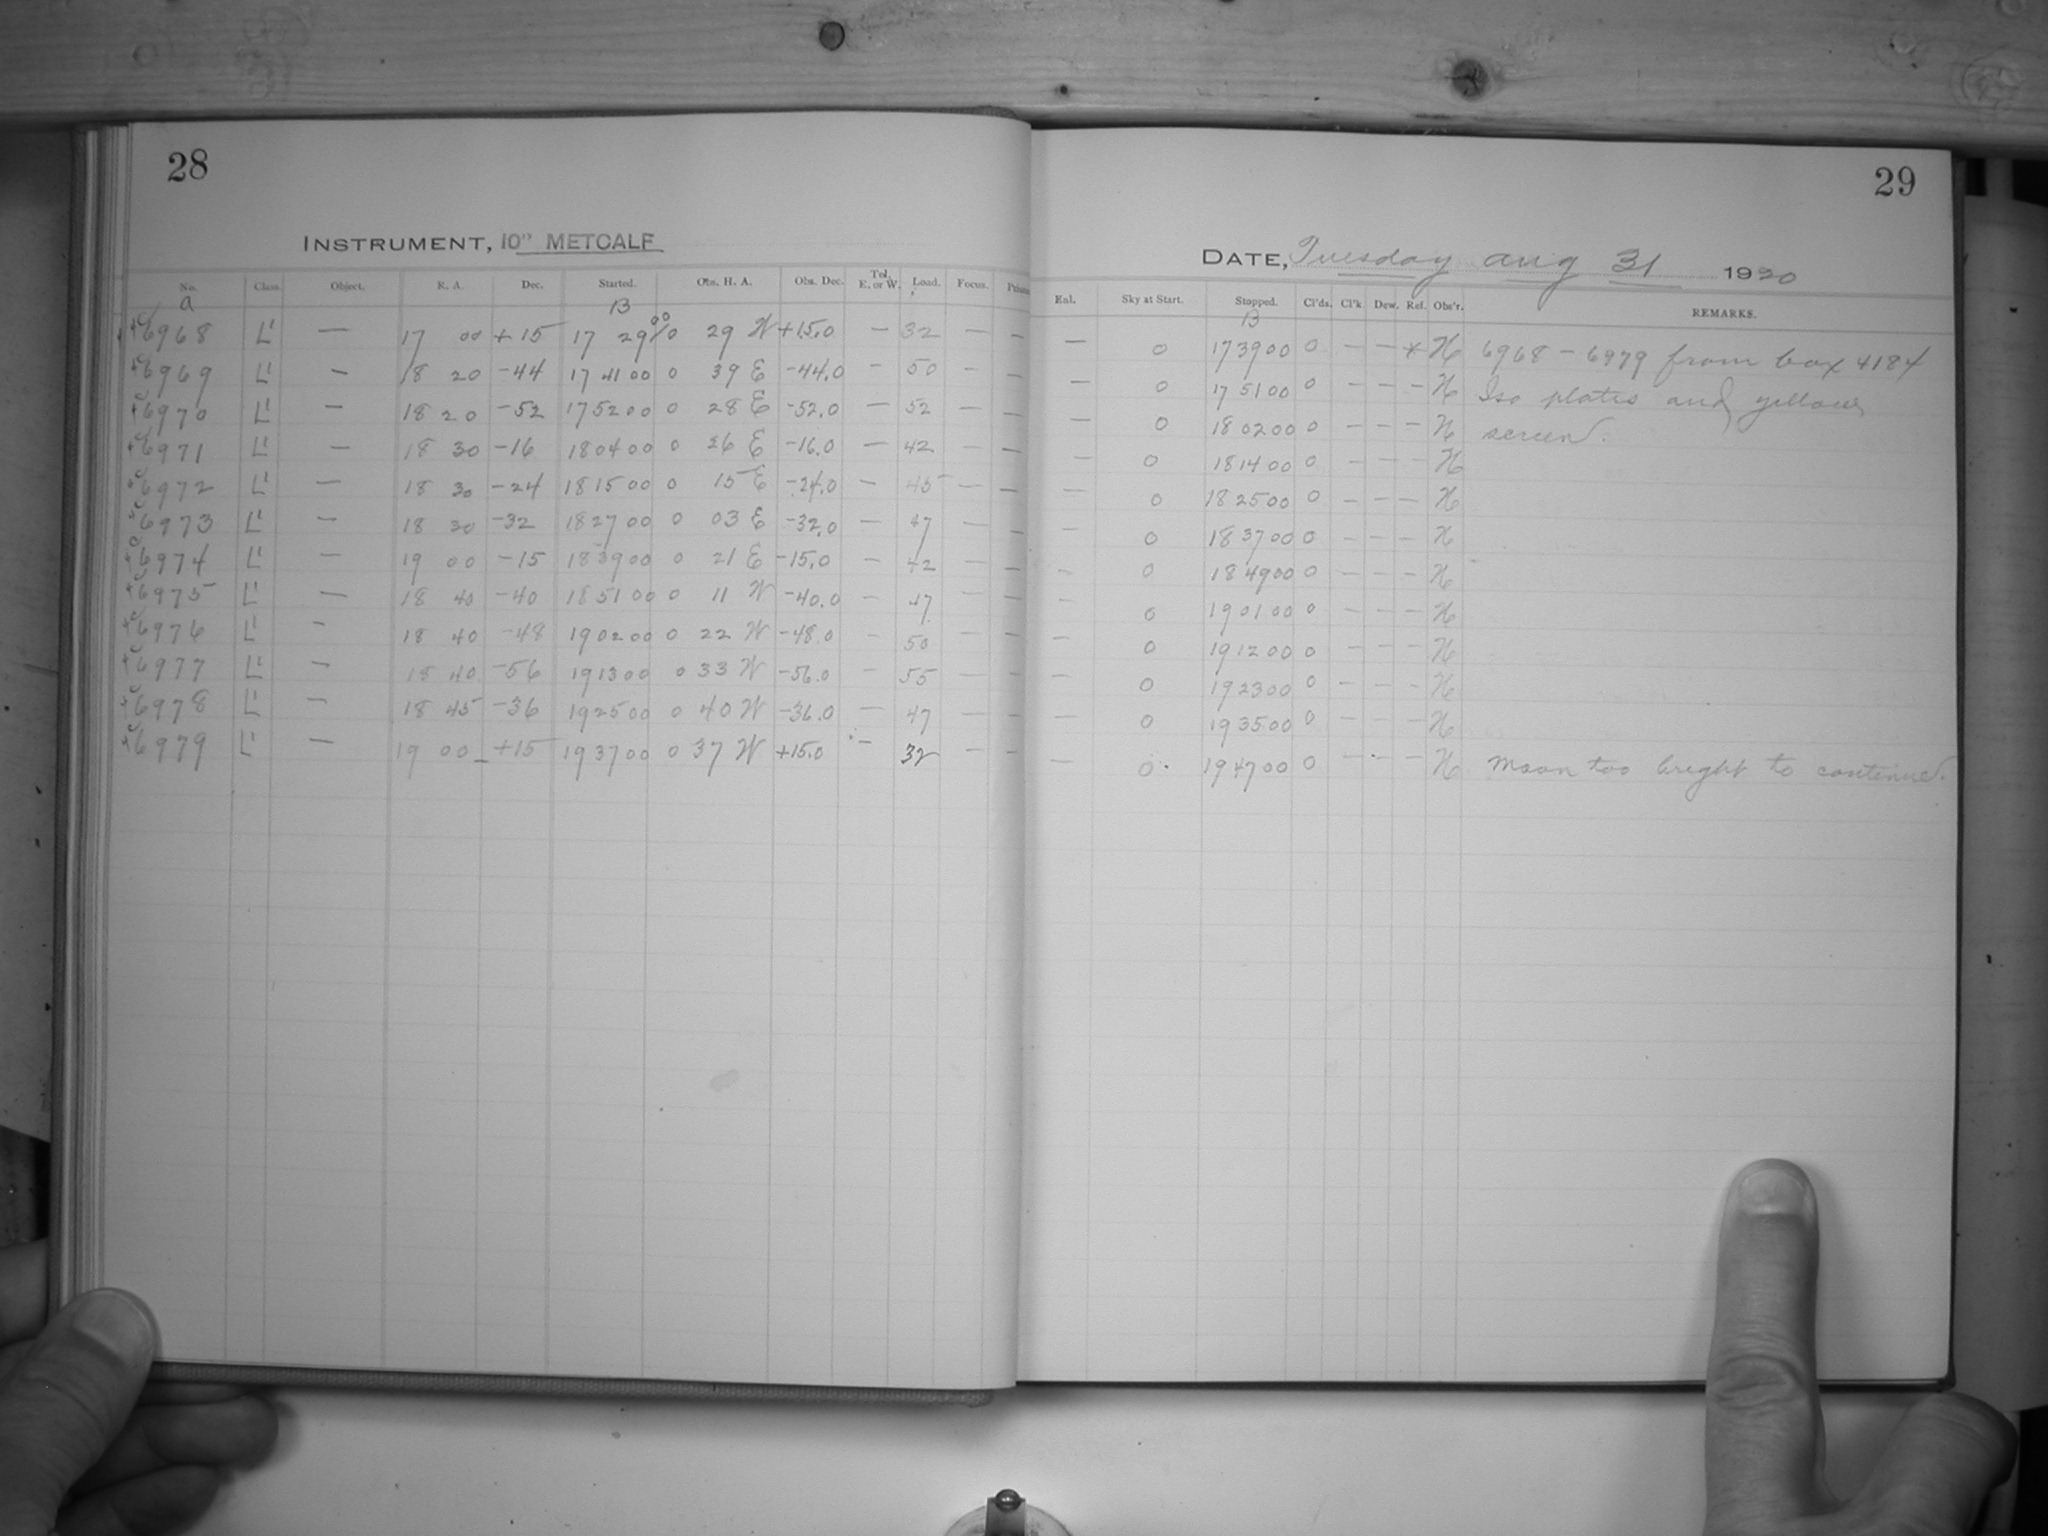 28
INSTRUMENT, 10" METCALF
No. Class. Object. R. A. Dec. Started. Obs. H. A. Obs. Dec. Tel. E. or W. Load. Focus.
a B
6968 L' — 17 00 +15 17 29 00 0 29 W +15.0 — 32 — —
6969 L' — 18 20 -44 17 41 00 0 39 E -44.0 — 50 — —
6970 L' — 18 20 -52 17 52 00 0 28 E -52.0 — 52 — —
6971 L' — 18 30 -16 18 04 00 0 26 E -16.0 — 42 — —
6972 L' — 18 30 -24 18 15 00 0 15 E -24.0 — 45 — —
6973 L' — 18 30 -32 18 27 00 0 03 E -32.0 — 47 — —
6974 L' — 19 00 -15 18 39 00 0 21 E -15.0 — 42 — —
6975 L' — 18 40 -40 18 51 00 0 11 W -40.0 — 47 — —
6976 L' — 18 40 -48 19 02 00 0 22 W -48.0 — 50 — —
6977 L' — 18 40 -56 19 13 00 0 33 W -56.0 — 55 — —
6978 L' — 18 45 -36 19 25 00 0 40 W -36.0 — 47 — —
6979 L' — 19 00 +15 19 37 00 0 37 W +15.0 — 32 — —
29
DATE, Tuesday Aug 31 1920
Enl. Sky at Start. Stopped. Cl'ds. Cl'k. Dew. Ref. Obs'r. REMARKS.
B
— 0 17 39 00 0 — — * H 6968 - 6979 from box 4184
— 0 17 51 00 0 — — — H Iso plates and yellow
— 0 18 02 00 0 — — — H screen.
— 0 18 14 00 0 — — — H
— 0 18 25 00 0 — — — H
— 0 18 37 00 0 — — — H
— 0 18 49 00 0 — — — H
— 0 19 01 00 0 — — — H
— 0 19 12 00 0 — — — H
— 0 19 23 00 0 — — — H
— 0 19 35 00 0 — — — H
— 0 19 47 00 0 — — — H Moon too bright to continue.